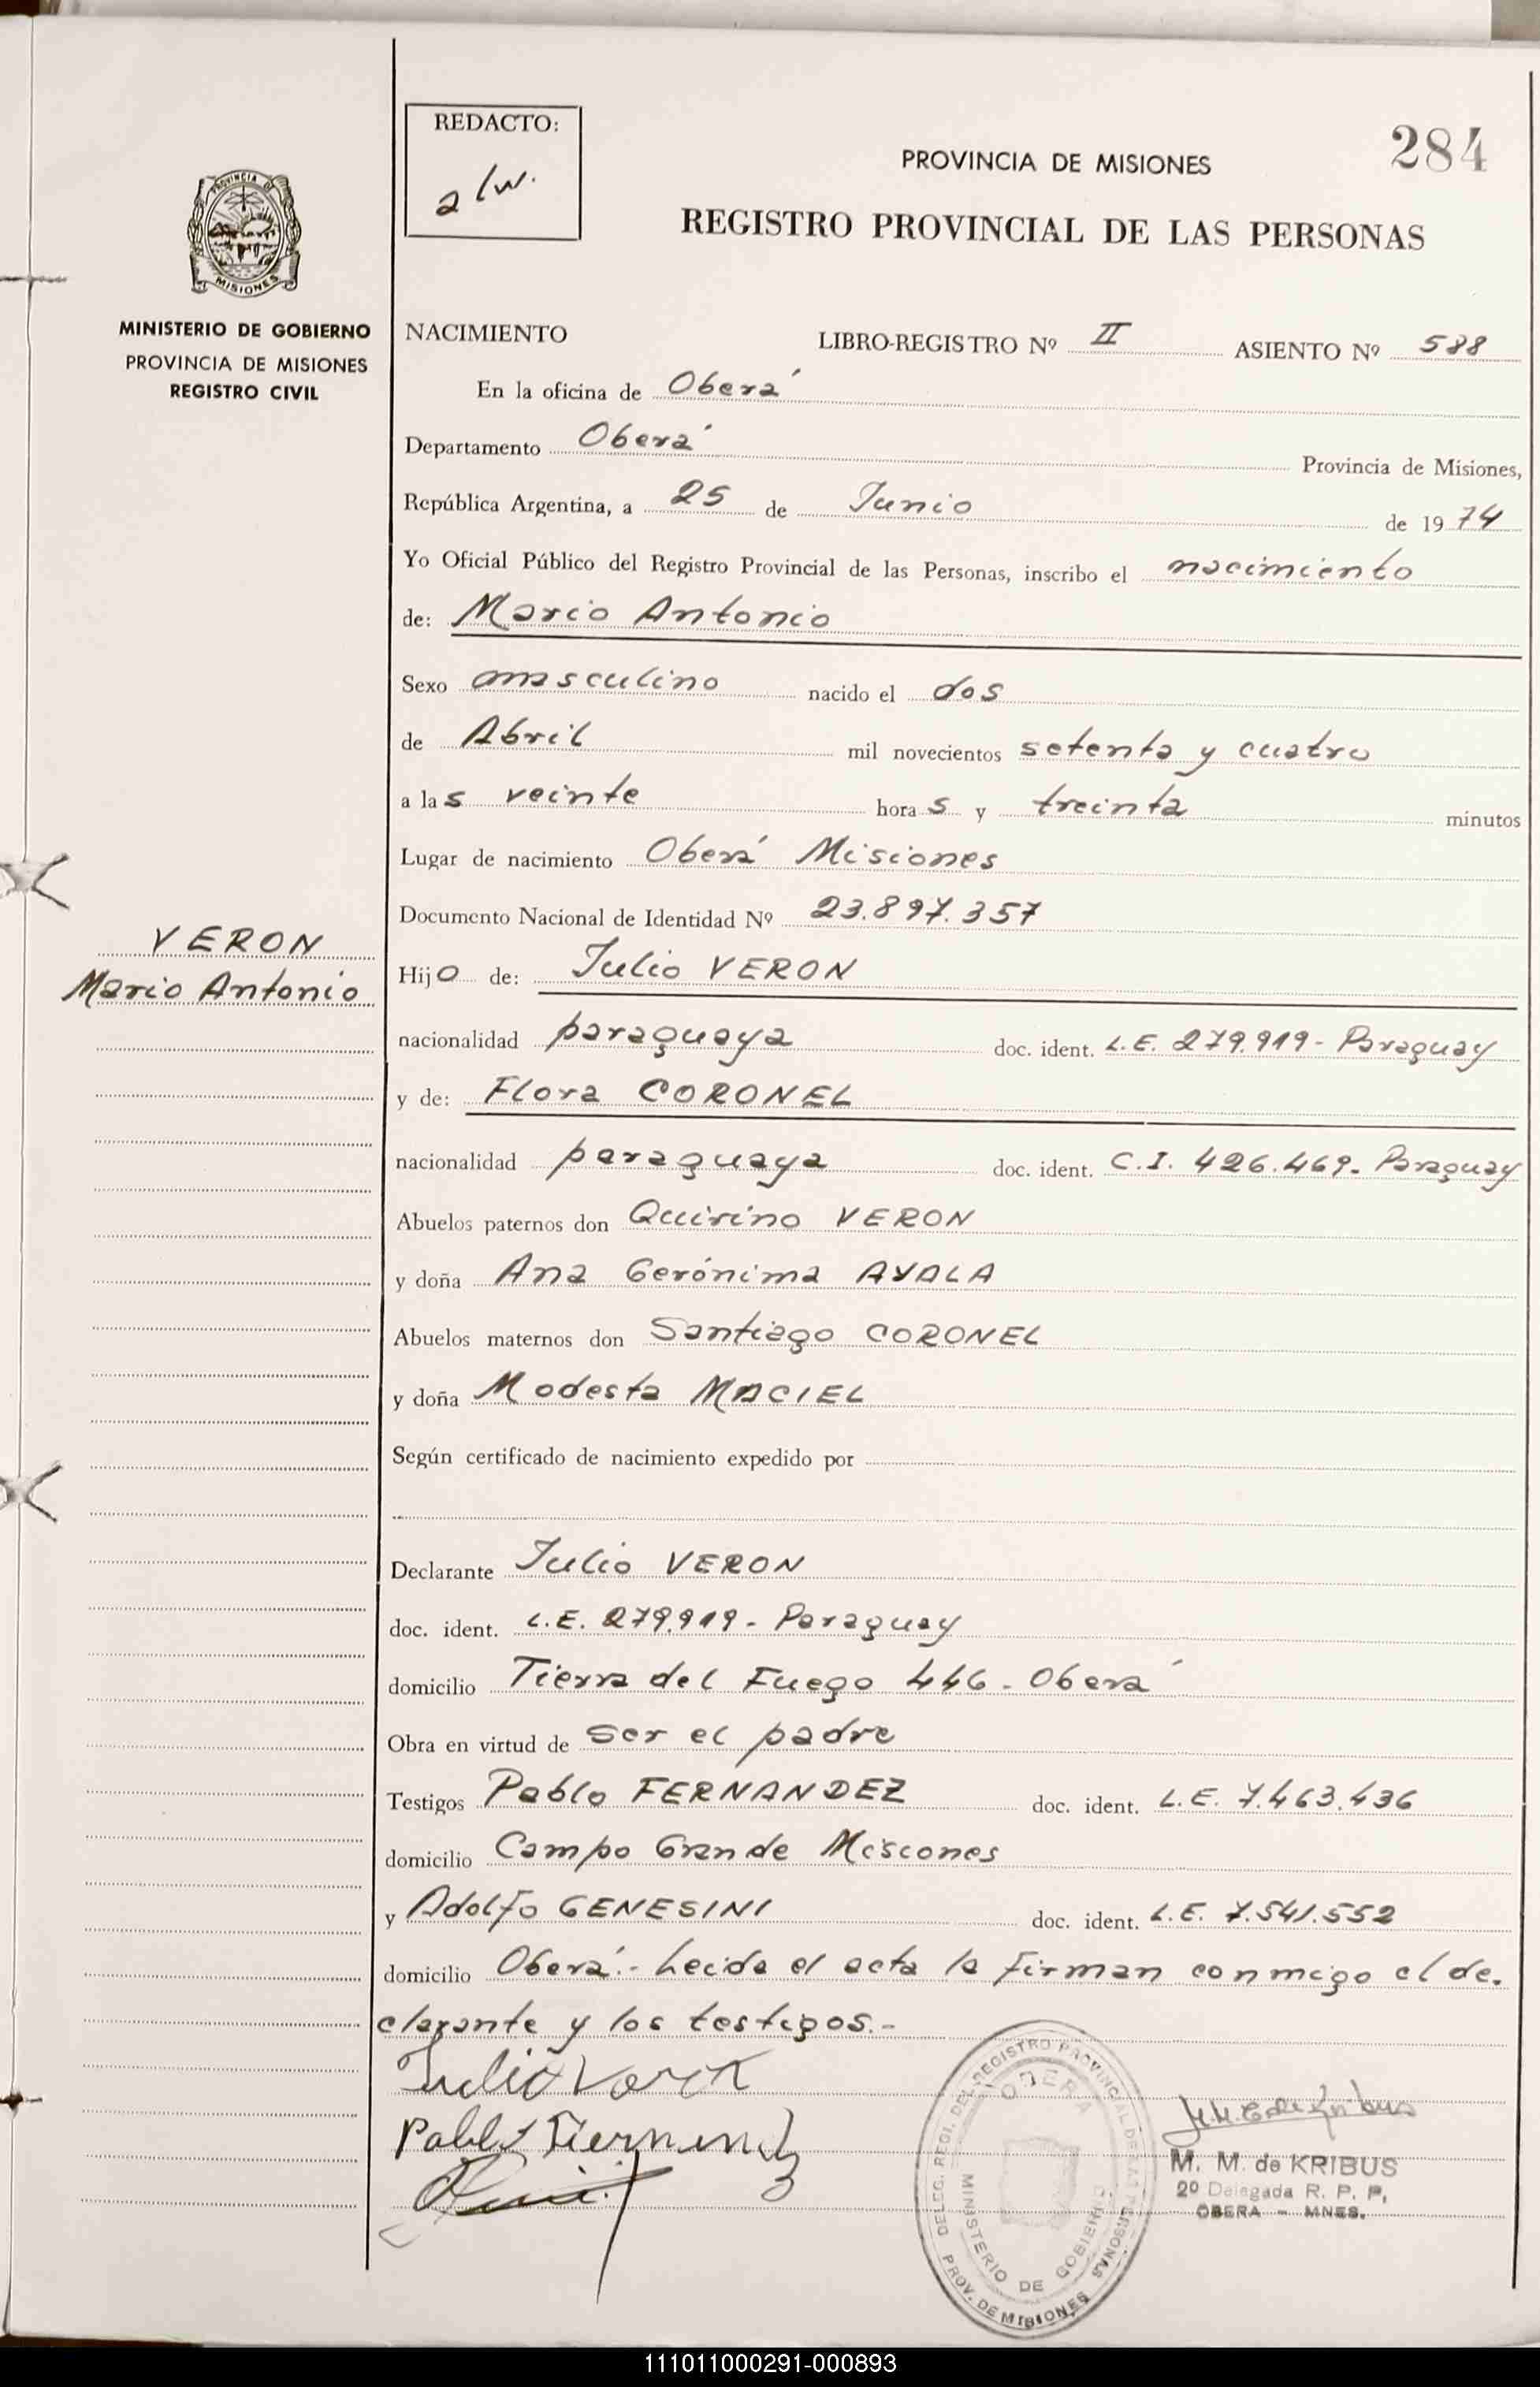 REDACTO:
284
PROVINCIA DE MISIONES
REGISTRO PROVINCIAL DE LAS PERSONAS
PROVINCIA DE
MISIONES
MINISTERIO DE GOBIERNO
PROVINCIA DE MISIONES
REGISTRO CIVIL
NACIMIENTO LIBRO-REGISTRO Nº II ASIENTO Nº 588
En la oficina de Oberá
Departamento Oberá Provincia de Misiones,
República Argentina, a 25 de Junio de 1974
Yo Oficial Público del Registro Provincial de las Personas, inscribo el nacimiento
de: Mario Antonio
Sexo masculino nacido el dos
de Abril mil novecientos setenta y cuatro
a las veinte horas y treinta minutos
Lugar de nacimiento Oberá Misiones
Documento Nacional de Identidad Nº 23.897.357
VERON
Mario Antonio
Hijo de: Julio VERON
nacionalidad paraguaya doc. ident. L.E. 279.919- Paraguay
y de: Flora CORONEL
nacionalidad paraguaya doc. ident. C.I. 426.469- Paraguay
Abuelos paternos don Quirino VERON
y doña Ana Gerónima AYALA
Abuelos maternos don Santiago CORONEL
y doña Modesta MACIEL
Según certificado de nacimiento expedido por
Declarante Julio VERON
doc. ident. L.E. 279.919- Paraguay
domicilio Tierra del Fuego 446- Oberá
Obra en virtud de ser el padre
Testigos Pablo FERNANDEZ doc. ident. L.E. 7.463.436
domicilio Campo Grande Misiones
y Adolfo GENESINI doc. ident. L.E. 7.541.552
domicilio Oberá.- Leida el acta la firman conmigo el de-
clarante y los testigos.-
Julio Veron
Pablo Fernandez
DELEG. REGI. DEL REGISTRO PROVINCIAL DE LAS PERSONAS
PROV. DE MISIONES
OBERA
MINISTERIO DE GOBIERNO
M. M. de KRIBUS
2º Delegada R. P. P.
OBERA - MNES.
111011000291-000893